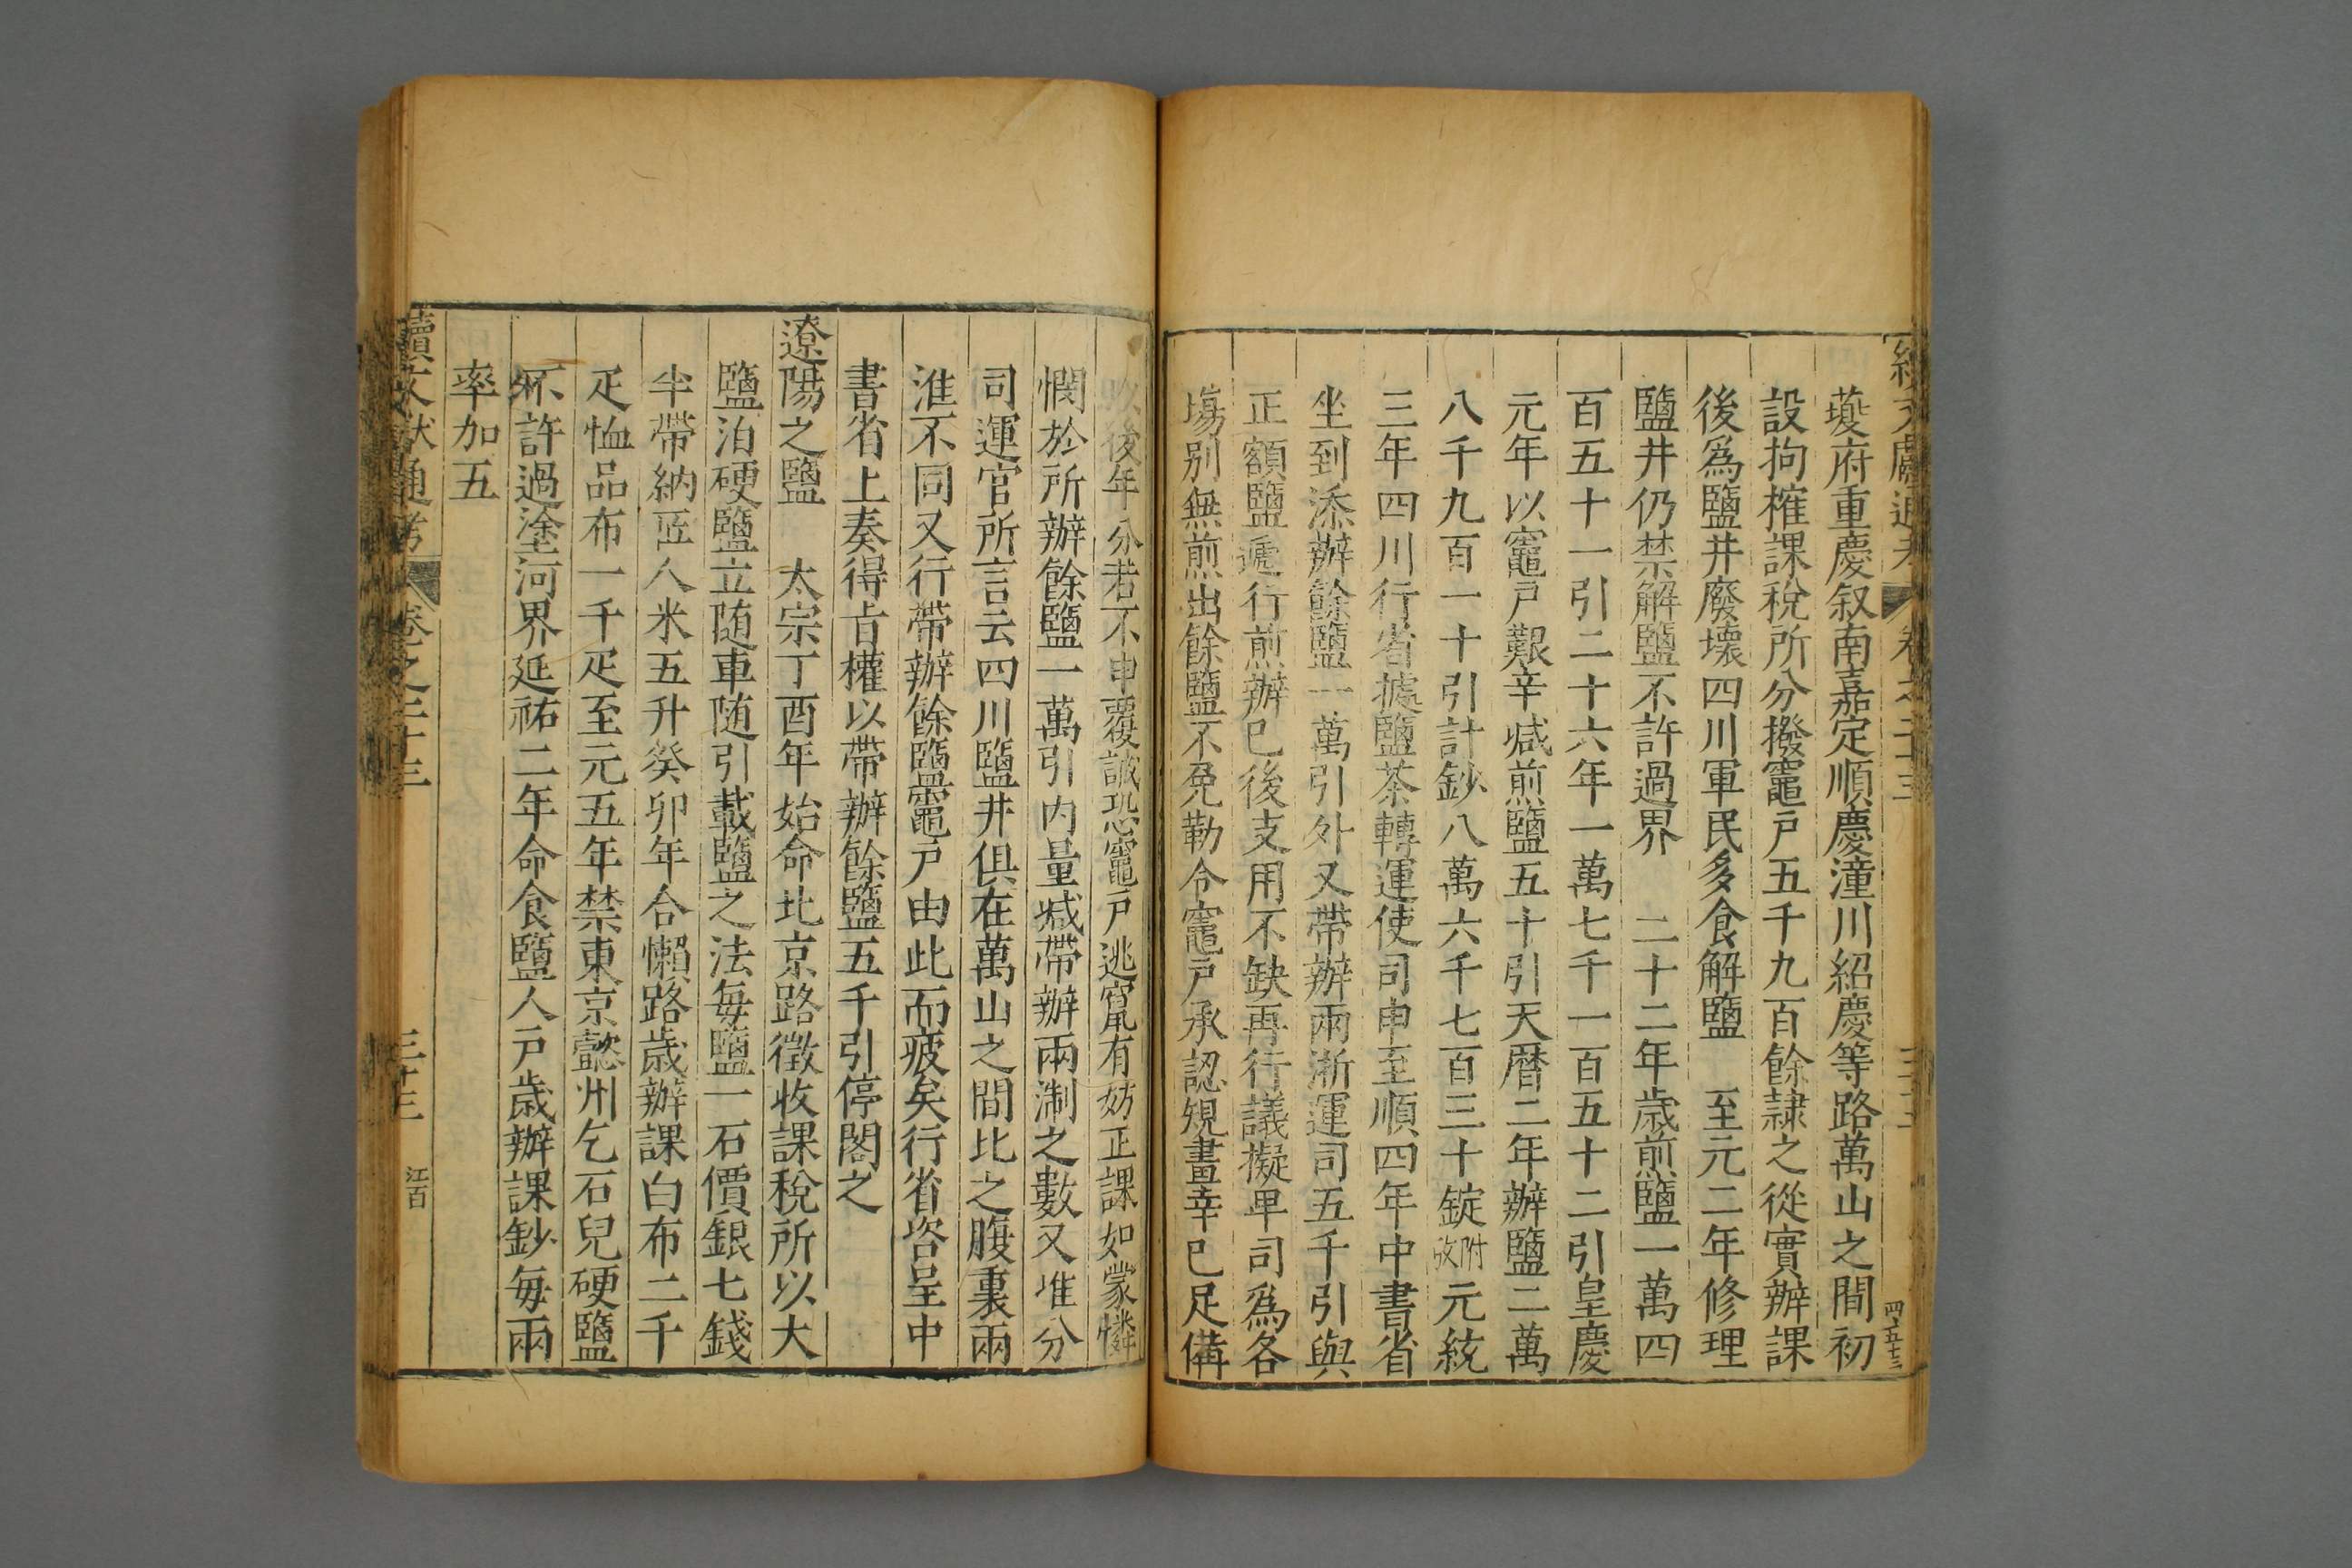 續文獻通考 卷之二十三
夔府重慶叙南嘉定順慶潼川紹慶等路萬山之間初
設拘榷課稅所分撥竈戶五千九百餘隷之從實辦課
後爲鹽井廢壞四川軍民多食解鹽 至元二年修理
鹽井仍禁解鹽不許過界 二十二年歲煎鹽一萬四
百五十一引二十六年一萬七千一百五十二引皇慶
元年以竈戶艱辛减煎鹽五十引天曆二年辦鹽二萬
八千九百一十引計鈔八萬六千七百三十錠附攷元統
三年四川行省據鹽茶轉運使司申至順四年中書省
坐到添辦餘鹽一萬引外又帶辦兩浙運司五千引與
正額鹽逓行煎辦已後支用不缺再行議擬卑司爲各
塲別無煎出餘鹽不免勒令竈戶承認規畫辛已足備
以後年分若不申覆誠恐竈戶逃竄有妨正課如蒙憐
憫於所辦餘鹽一萬引内量减帶辦兩淛之數又准分
司運官所言云四川鹽井俱在萬山之間比之腹裏兩
淮不同又行帶辦餘鹽竈戶由此而疲矣行省咨呈中
書省上奏得㫖權以帶辦餘鹽五千引停閣之
遼陽之鹽 太宗丁酉年始命北京路徵收課稅所以大
鹽泊硬鹽立随車随引載鹽之法每鹽一石價銀七錢
半帶納匹人米五升癸卯年合懶路歲辦課白布二千
疋恤品布一千疋至元五年禁東京懿州乞石兒硬鹽
不許過塗河界延祐二年命食鹽人戶歲辦課鈔每兩
率加五
續文獻通考 卷之二十三 三十三 江百